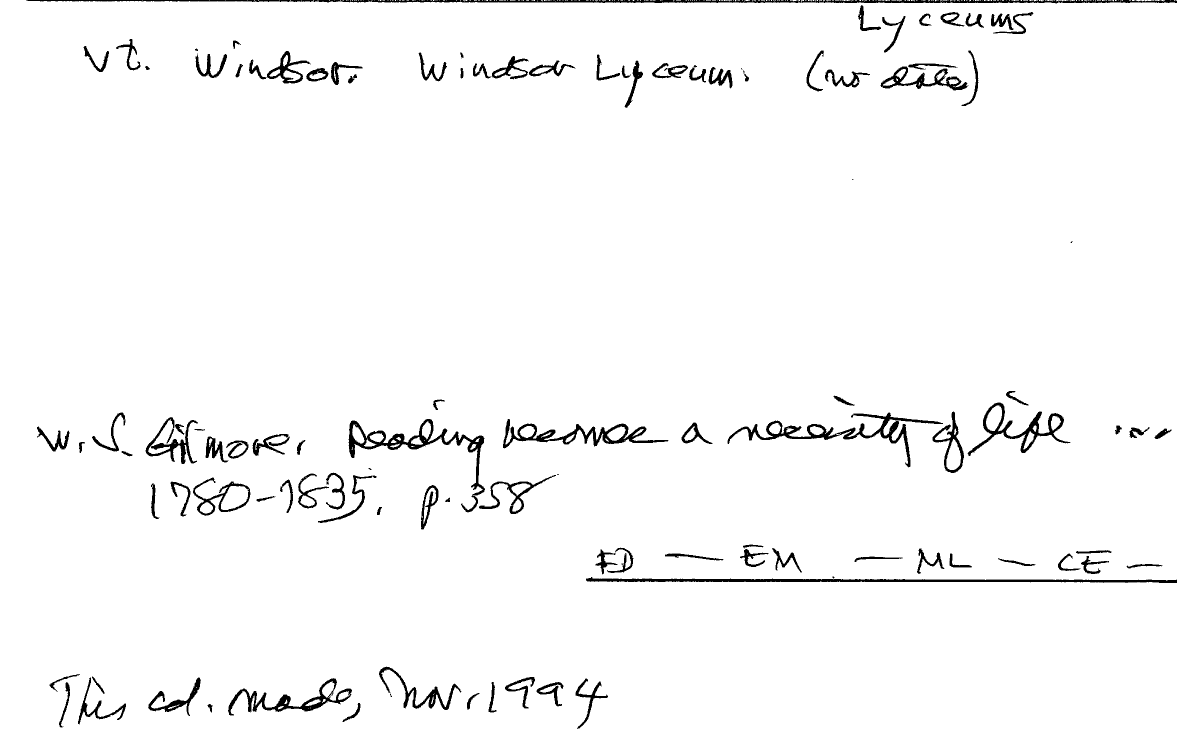 Lyceums
Vt. Windsor. Windsor Lyceum. (no date)
W. S. Gilmore. Reading becomes a necessity of life ...
1780-1835. p. 358
ED — EM — ML — CE —
This cd. made, Nov. 1994